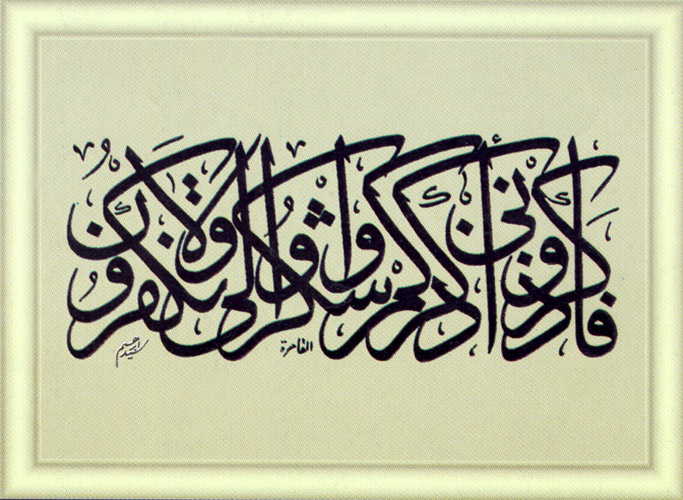 فاذكروني أذكركم واشكروا لي ولا تكفرون
القاهرة